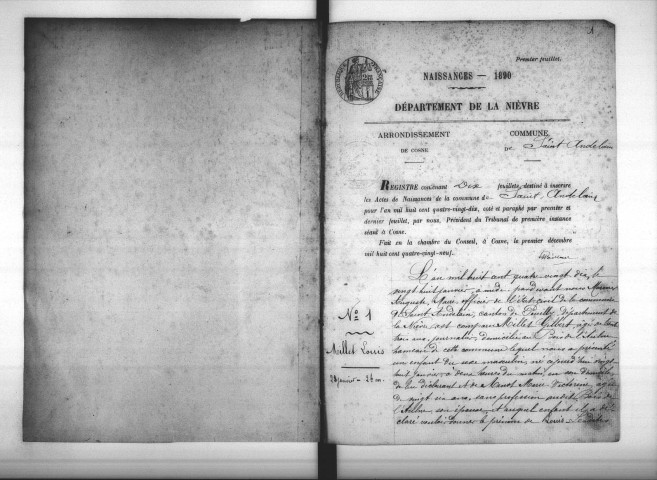 1
Premier feuillet.
NAISSANCES — 1890
DÉPARTEMENT DE LA NIÈVRE
ARRONDISSEMENT
DE COSNE
COMMUNE
DE Saint Andelain
REGISTRE contenant Dix feuillets, destiné à inscrire
les Actes de Naissances de la commune de Saint Andelain
pour l'an mil huit cent quatre-vingt-dix, coté et paraphé par premier et
dernier feuillet, par nous, Président du Tribunal de première instance
séant à Cosne.
Fait en la chambre du Conseil, à Cosne, le premier décembre
mil huit cent quatre-vingt-neuf.
N° 1
Millet Louis
28 janvier
L'an mil huit cent quatre vingt dix, le
vingt huit janvier, à midi pardevant nous
Auguste, Maire officier de l'état civil de la commune
de Saint Andelain, canton de Pouilly, département de
la Nièvre, est comparu Millet Gilbert, âgé de
trois ans, journalier domicilié au
hameau de cette commune lequel nous a présenté
un enfant du sexe masculin, né aujourd'hui vingt
huit janvier à deux heures du matin, en son domicile
de lui déclarant et de Marie âgée
de vingt six ans, sans profession
son épouse, et auquel enfant il a dé-
claré vouloir donner le prénom de Louis